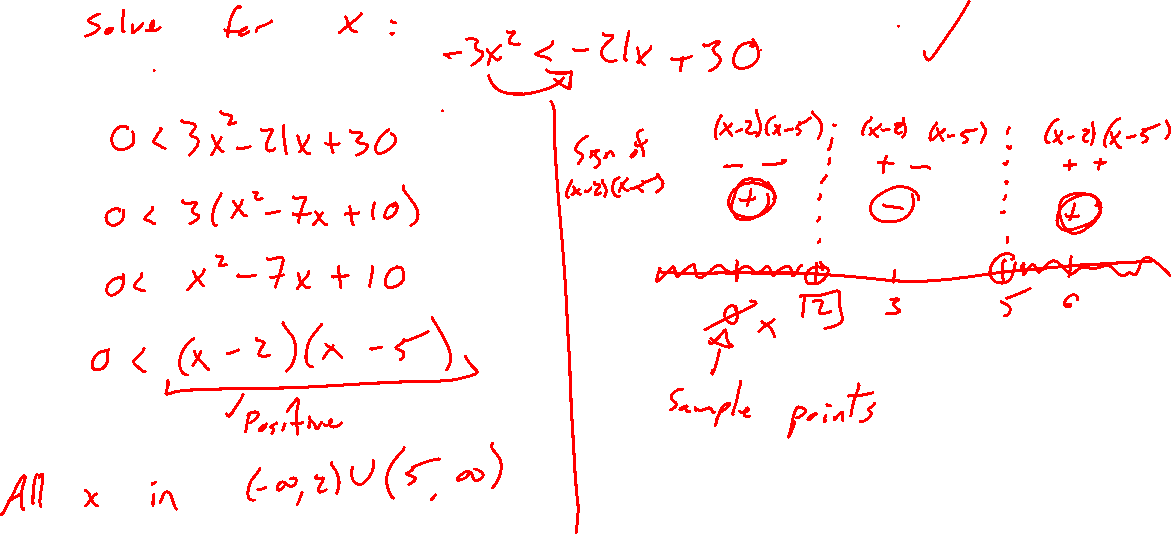 Solve for x :
-3x² < -21x + 30
0 < 3x² - 21x + 30
0 < 3(x² - 7x + 10)
0 < x² - 7x + 10
0 < (x - 2)(x - 5)
Positive
All x in (-∞, 2) ∪ (5, ∞)
Sign of
(x-2)(x-5)
(x-2)(x-5) (x-2) (x-5) (x-2)(x-5)
- - + - + +
+ - +
0 x 2 3 5 6
Sample points